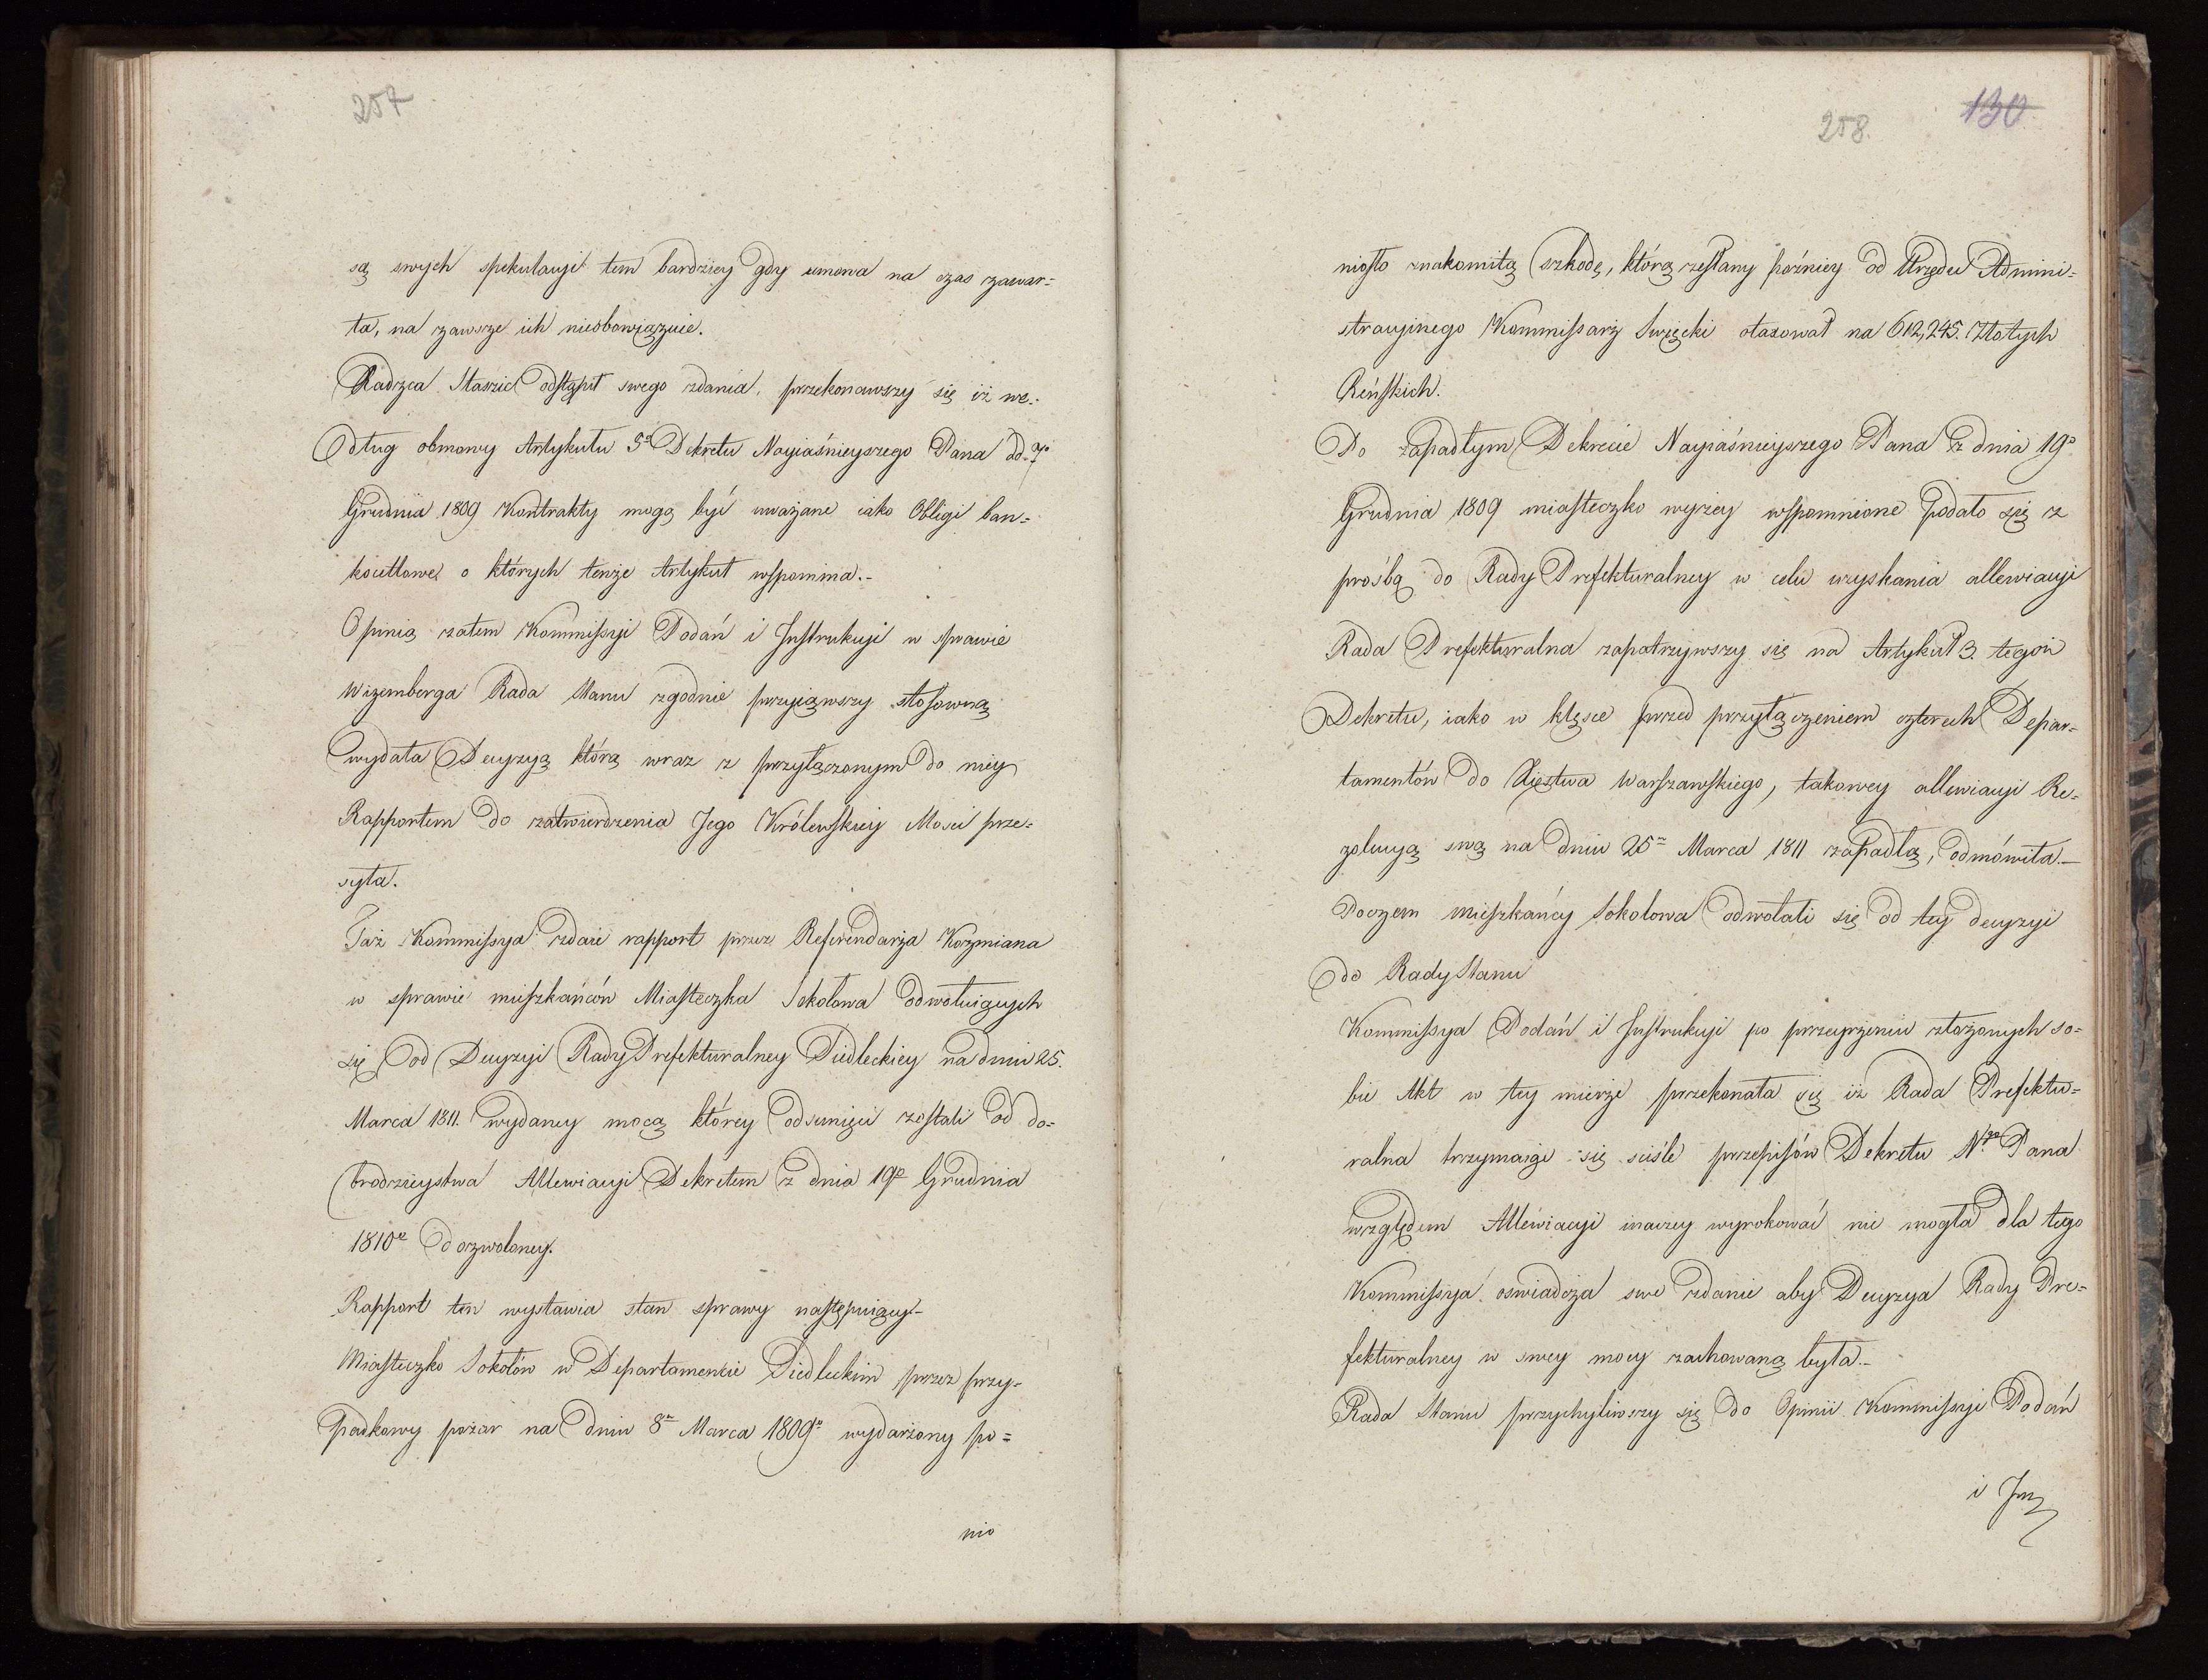 257
są swych spekulacyi tem bardziey gdy umowa na czas zawar=
ta, na zawsze ich nieobowiązuie.
Radzca Staszic odstąpił swego zdania, przekonawszy się iż we=
dług osnowy Artykułu 5º Dekretu Nayiaśnieyszego Pana dd. 7º
Grudnia 1809 Kontrakty mogą być uważane iako Obligi ban=
kocetlowe o których tenże Artykuł wspomina.-
Opinią zatem Kommissyi Podań i Instrukcyi w sprawie
Wizemberga Rada Stanu zgodnie przyiąwszy stosowną
wydała Decyzyą którą wraz z przyłączonym do niey
Rapportem do zatwierdzenia Jego Królewskiey Mosci prze=
syła.
Taż Kommissya zdaie rapport przez Referendarza Kozmiana
w sprawie mieszkańców Miasteczka Sokołowa odwołuiących
się od Decyzyi Rady Prefekturalney Siedleckiey na dniu 25.
Marca 1811. wydaney mocą którey odsunięci zostali od do=
brodzieystwa Allewiacyi Dekretem z dnia 19º Grudnia
1810º dozwoloney.
Rapport ten wystawia stan sprawy następuiący-
Miasteczko Sokołów w Departamencie Siedleckim przez przy=
padkowy pożar na dniu 8º Marca 1809º wydarzony po=
nio
258. 130
niosło znakomitą szkodę, którą zesłany poźniey od Urzędu Admini=
stracyinego Kommissarz Swięcki otaxował na 612,245. Złotych
Reńskich.
Po zapadłym Dekrecie Nayiaśnieyszego Pana z dnia 19º
Grudnia 1809 miasteczko wyżey wspomnione podało się z
prośbą do Rady Prefekturalney w celu uzyskania allewiacyi
Rada Prefekturalna zapatrzywszy się na Artykuł 3. tegoż
Dekretu, iako w klęsce przed przyłączeniem czterech Depar=
tamentów do Xięstwa Warszawskiego, takowey allewiacyi Re=
zolucyą swą na dniu 25º Marca 1811 zapadłą, odmówiła.-
Poczem mieszkańcy Sokołowa odwołali się od tey decyzyi
do Rady Stanu
Kommissya Podań i Instrukcyi po przeyrzeniu złożonych so=
bie Akt w tey mierze przekonała się iż Rada Prefektu=
ralna trzymaiąc się sciśle przepisów Dekretu N.go Pana
względem Allewiacyi inaczey wyrokować nie mogła dla tego
Kommissya oswiadcza swe zdanie aby Decyzya Rady Pre=
fekturalney w swey mocy zachowaną była.-
Rada Stanu przychyliwszy się do Opinii Kommissyi Podań
i Ins